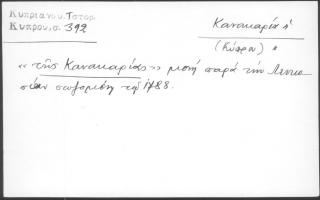 Κυπριανου. Ιστορ.
Κυπρου, σ. 392
Κανακαριά ἡ
(Κύπρου)
"τῆς Κανακαρίας" μονή παρά την Λευκο
σίαν σωζομένη τῷ 1788.